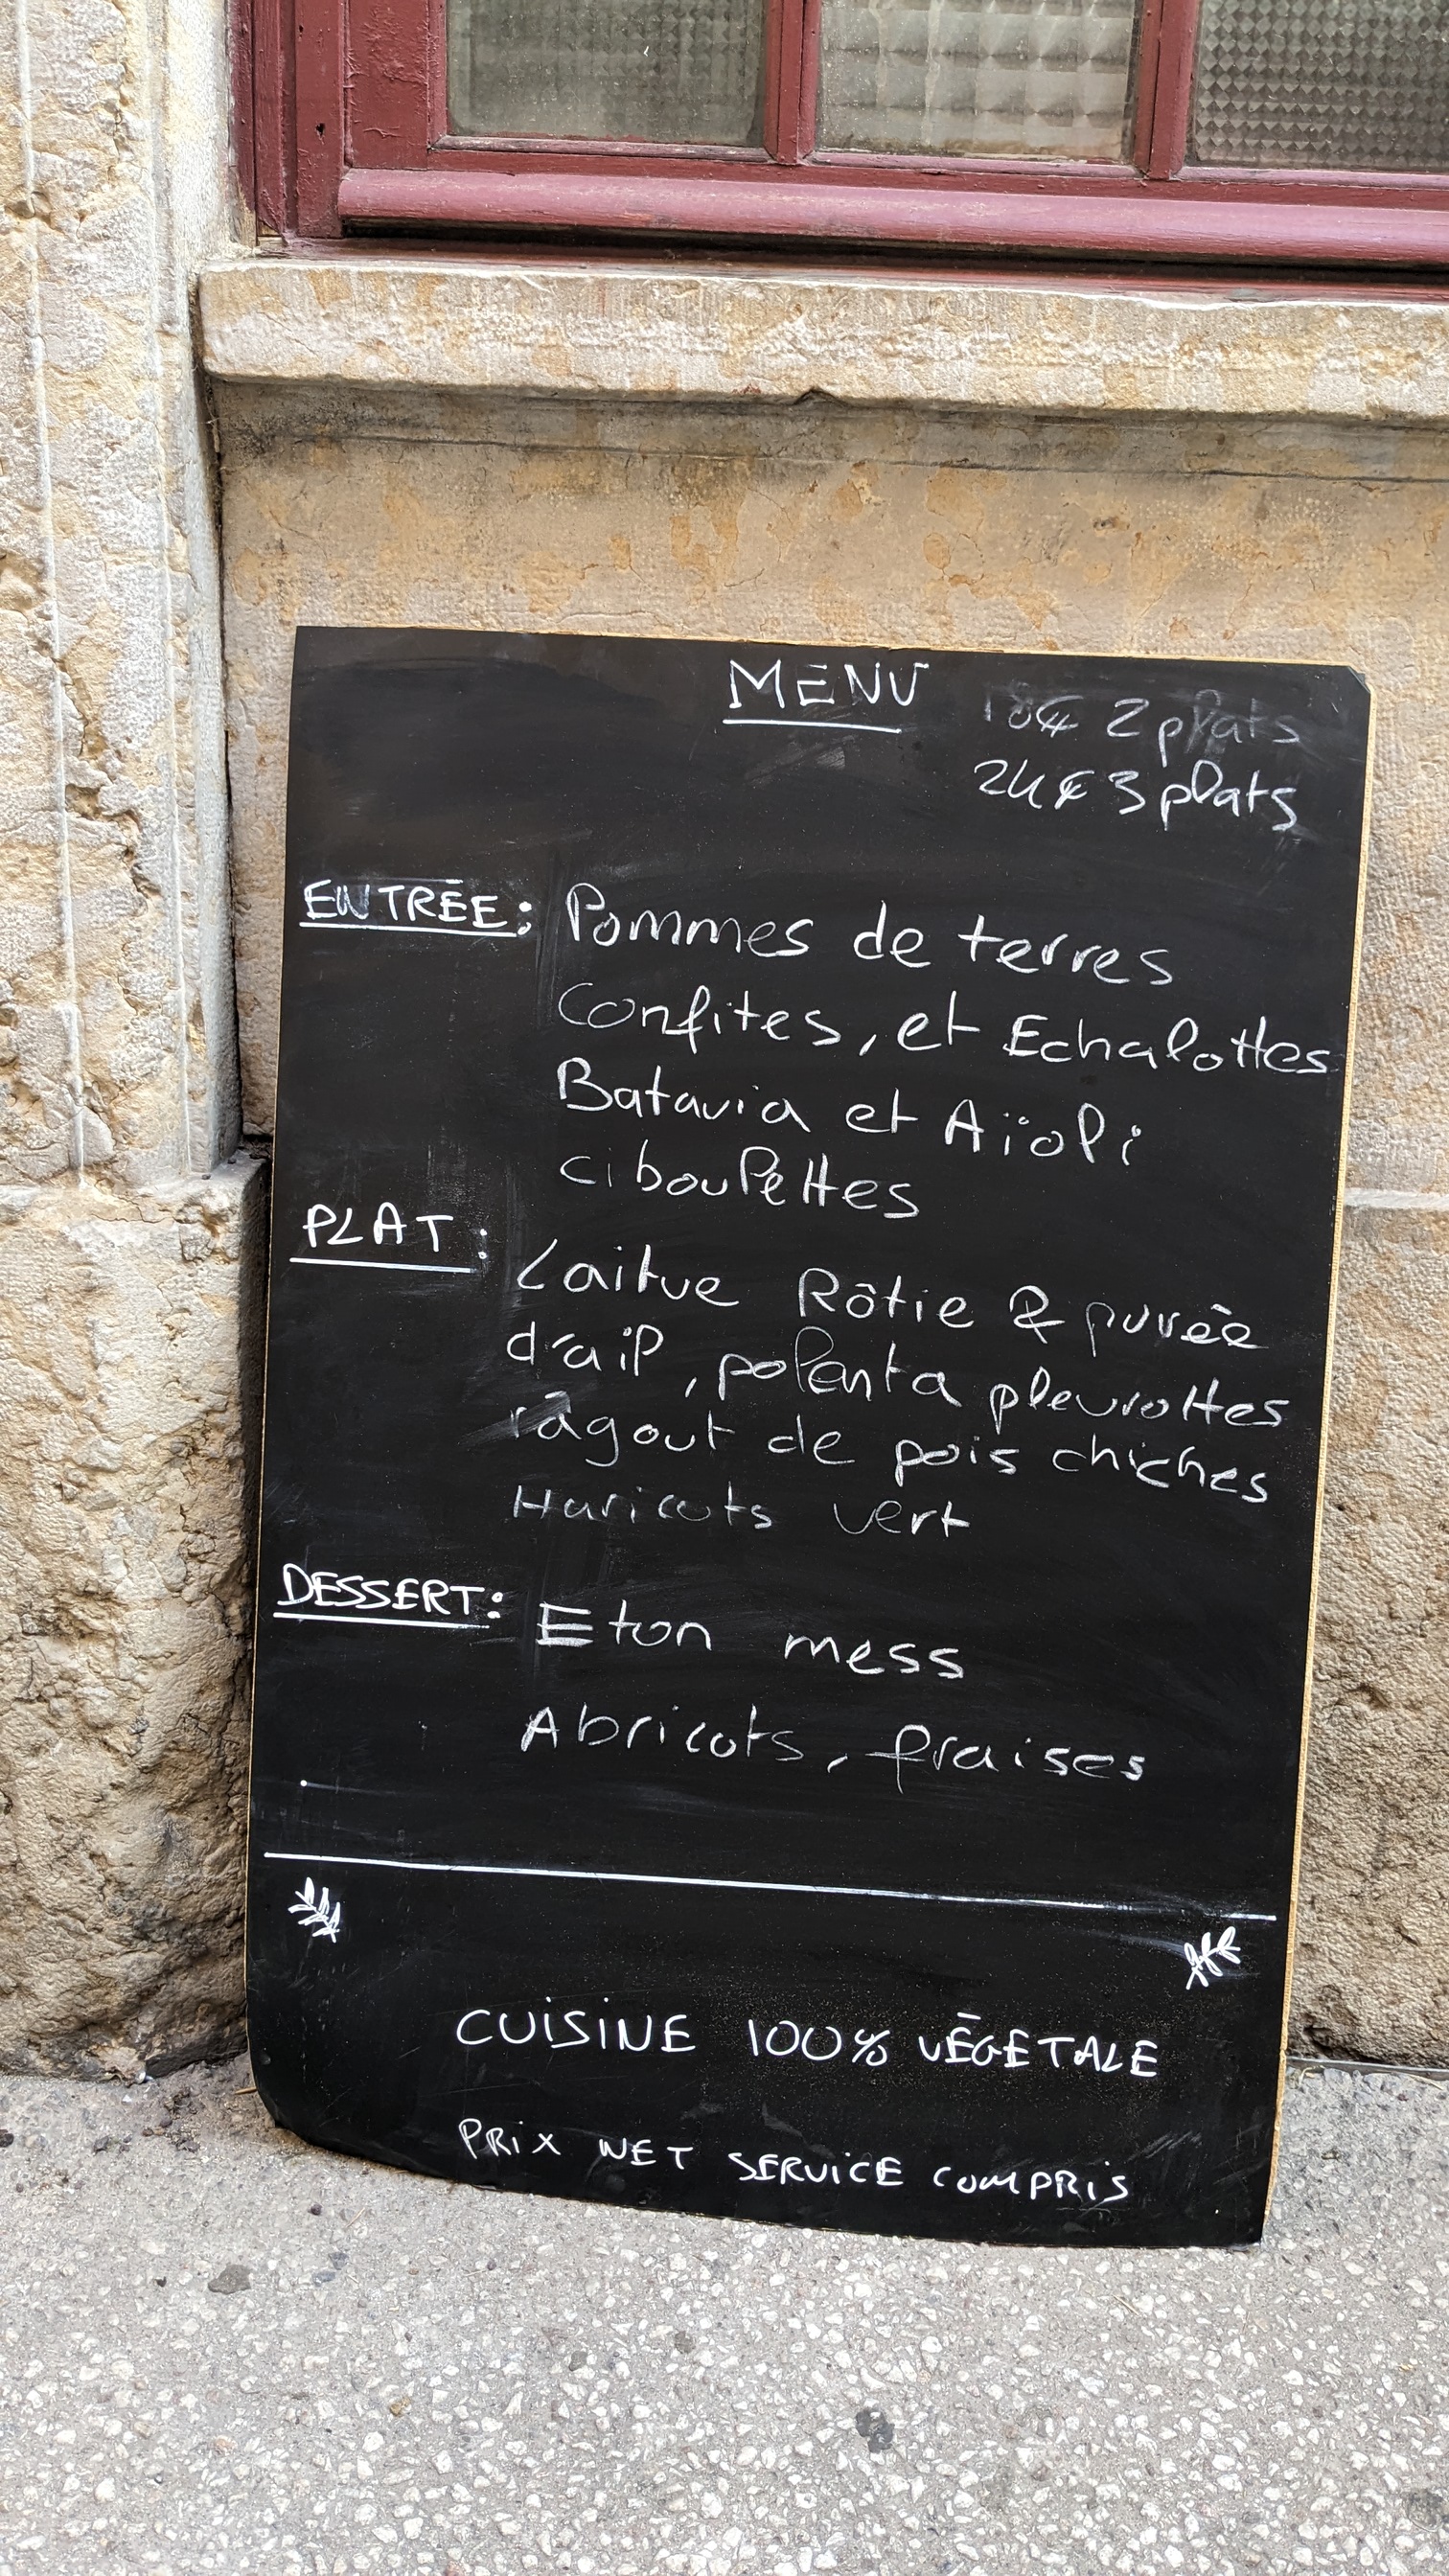 MENU
18€ 2 plats
24€ 3 plats
ENTRÉE: Pommes de terres
Confites, et Echalottes
Batavia et Aïoli
ciboulettes
PLAT: Laitue Rôtie & purée
d'ail, polenta pleurottes
râgout de pois chiches
Haricots vert
DESSERT: Eton mess
Abricots, fraises
CUISINE 100% VÉGÉTALE
PRIX NET SERVICE COMPRIS